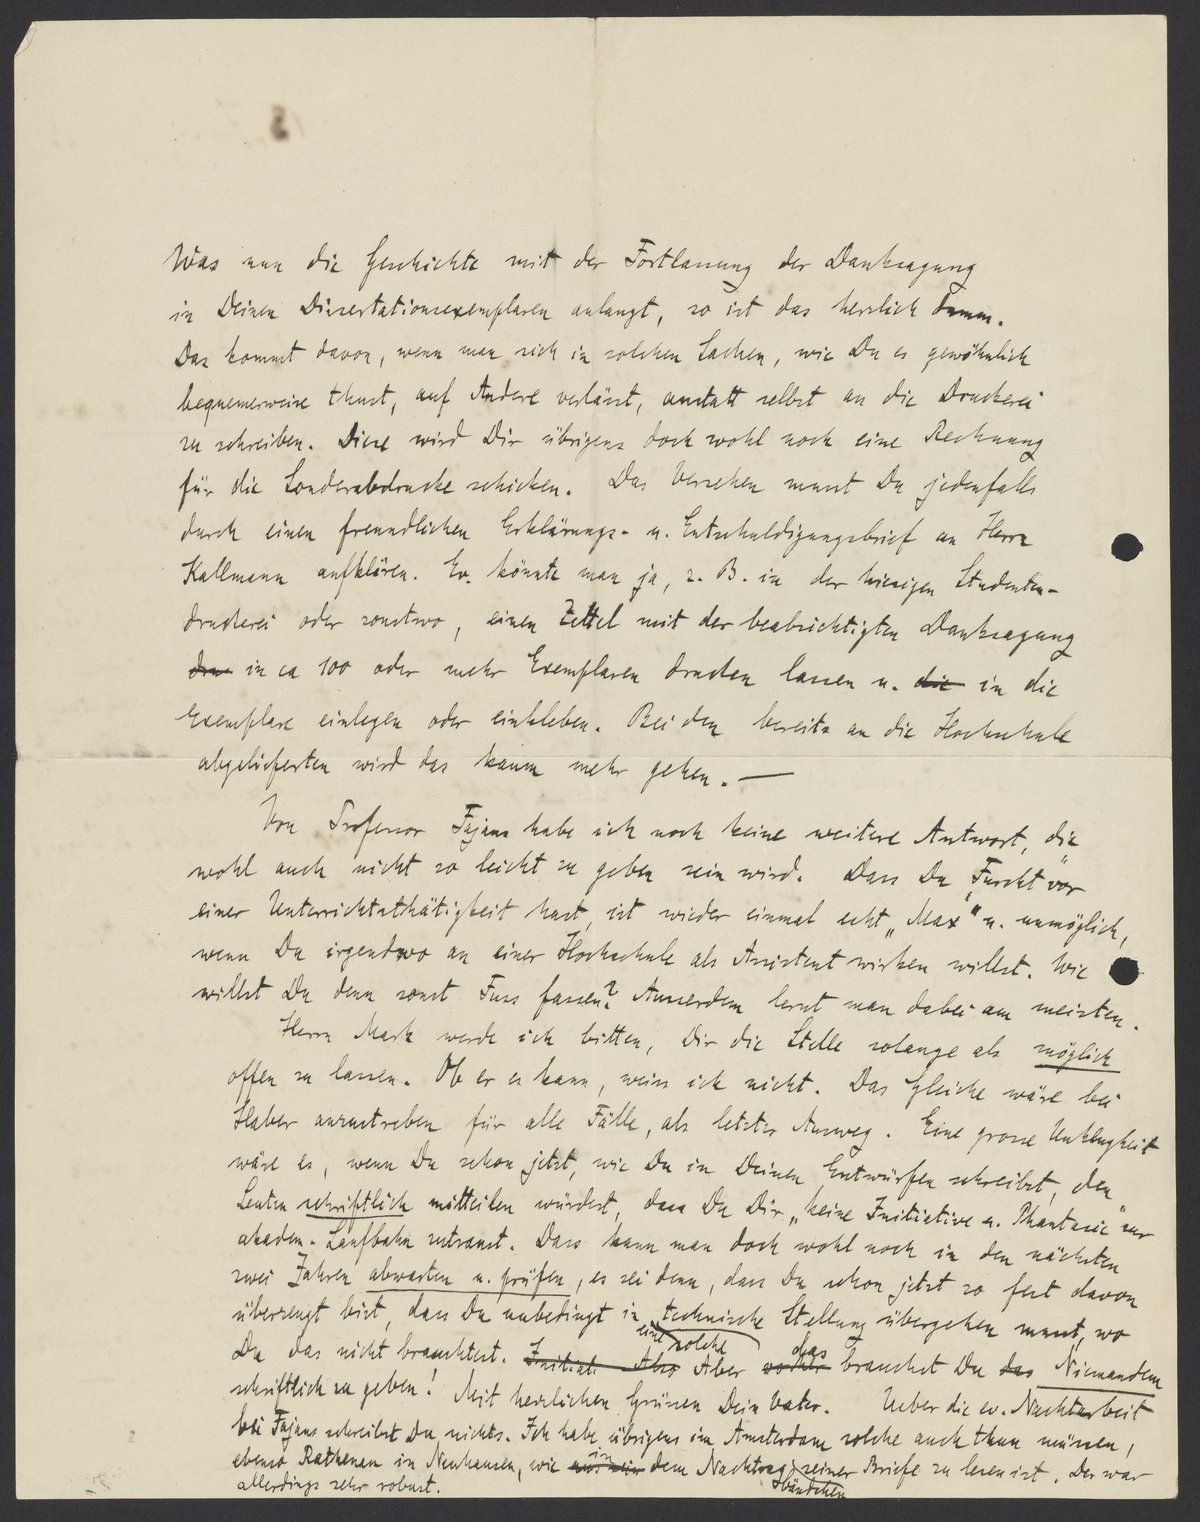 Was nun die Geschichte mit der Fortlassung der Danksagung
in Deinen Dissertationsexemplaren anlangt, so ist das herzlich dumm.
Das kommt davon, wenn man sich in solchen Sachen, wie Du es gewöhnlich
bequemerweise thust, auf Andere verlässt, anstatt selbst an die Druckerei
zu schreiben. Diese wird Dir übrigens doch wohl noch eine Rechnung
für die Sonderabdrucke schicken. Das Versehen musst Du jedenfalls
durch einen freundlichen Erklärungs- u. Entschuldigungsbrief an Herrn
Kallmann aufklären. Ev. könnte man ja, z. B. in der hiesigen Studenten-
druckerei oder sonstwo, einen Zettel mit der beabsichtigten Danksagung
in ca 100 oder mehr Exemplaren drucken lassen u. die in die
Exemplare einlegen oder einkleben. Bei den bereits an die Hochschule
abgelieferten wird das kaum mehr gehen. —
Von Professor Fajans habe ich noch keine weitere Antwort, die
wohl auch nicht so leicht zu geben sein wird. Dass Du „Furcht" vor
einer Unterrichtsthätigkeit hast, ist wieder einmal echt „Max" u. unmöglich,
wenn Du irgendwo an einer Hochschule als Assistent wirken willst. Wie
willst Du denn sonst Fuss fassen? Ausserdem lernt man dabei am meisten.
Herrn Mark werde ich bitten, Dir die Stelle solange als möglich
offen zu lassen. Ob er es kann, weiss ich nicht. Das Gleiche wäre bei
Haber anzustreben für alle Fälle, als letzter Ausweg. Eine grosse Unklugheit
wäre es, wenn Du schon jetzt, wie Du in Deinen Entwürfen schreibst, den
Leuten schriftlich mitteilen würdest, dass Du Dir „keine Initiative u. Phantasie" zur
akadem. Laufbahn zutraust. Dass kann man doch wohl noch in den nächsten
zwei Jahren abwarten u. prüfen, es sei denn, dass Du schon jetzt so fest davon
überzeugt bist, dass Du unbedingt in eine solche technische Stellung übergehen musst, wo
Du das nicht brauchtest. Aber das brauchst Du Niemandem
schriftlich zu geben! Mit herzlichen Grüssen Dein Vater. Ueber die ev. Nachtarbeit
bei Fajans schreibst Du nichts. Ich habe übrigens in Amsterdam solche auch thun müssen,
ebenso Rathenau in Neuhausen, wie in dem Nachtrag Bändchen seiner Briefe zu lesen ist. Der war
allerdings sehr robust.